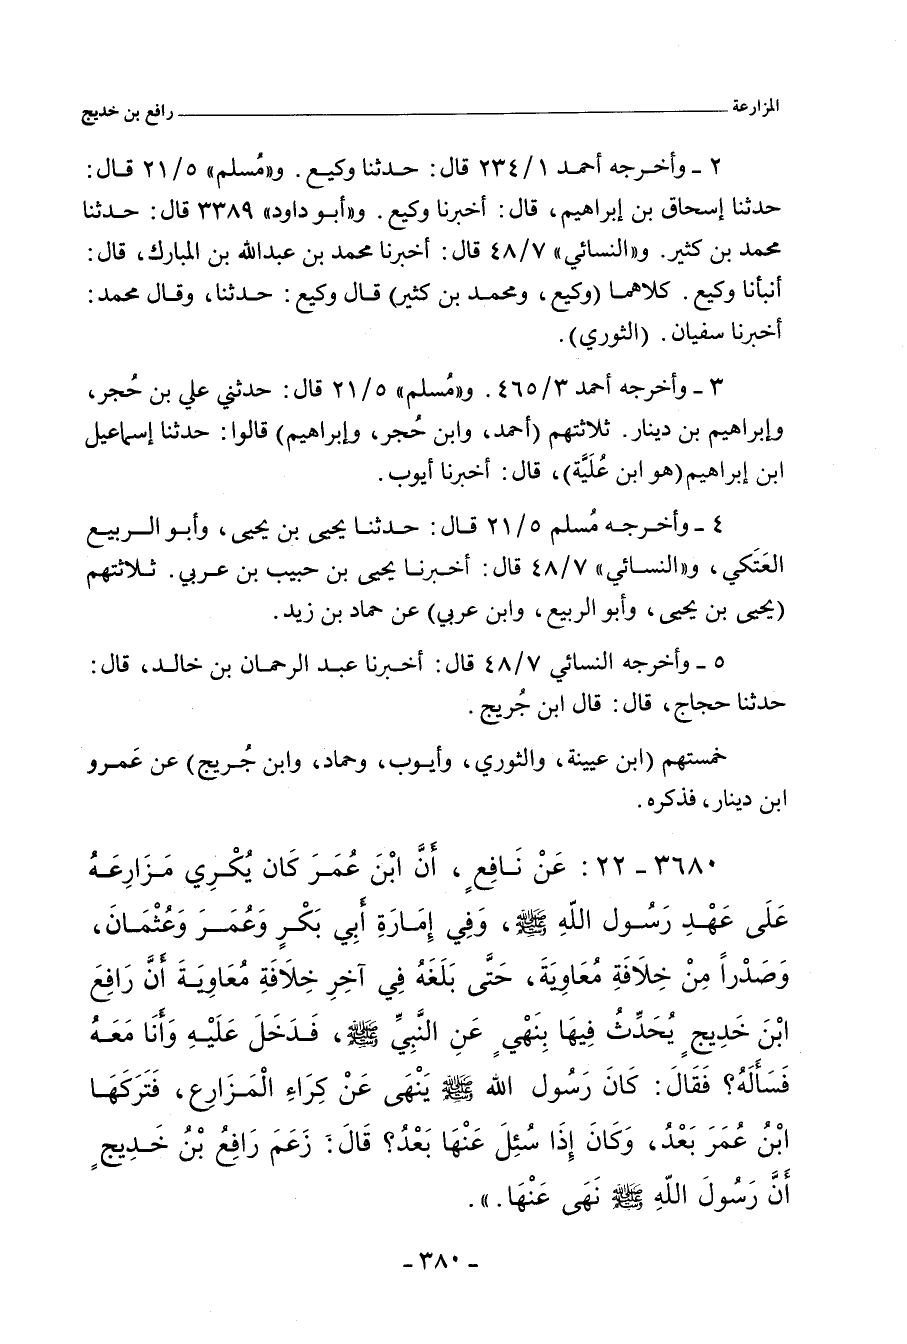 المزارعة ــــــــــ رافع بن خديج
٢ ـ وأخرجه أحمد ٢٣٤/١ قال: حدثنا وكيع. و«مُسلم» ٢١/٥ قال:
حدثنا إسحاق بن إبراهيم، قال: أخبرنا وكيع. و«أبو داود» ٣٣٨٩ قال: حدثنا
محمد بن كثير. و«النسائي» ٤٨/٧ قال: أخبرنا محمد بن عبدالله بن المبارك، قال:
أنبأنا وكيع. كلاهما (وكيع، ومحمد بن كثير) قال وكيع: حدثنا، وقال محمد:
أخبرنا سفيان. (الثوري).
٣ ـ وأخرجه أحمد ٤٦٥/٣. و«مُسلم» ٢١/٥ قال: حدثني علي بن حُجر،
وإبراهيم بن دينار. ثلاثتهم (أحمد، وابن حُجر، وإبراهيم) قالوا: حدثنا إسماعيل
ابن إبراهيم(هو ابن عُلَيَّة)، قال: أخبرنا أيوب.
٤ ـ وأخرجه مُسلم ٢١/٥ قال: حدثنا يحيى بن يحيى، وأبو الربيع
العَتَكي، و«النسائي» ٤٨/٧ قال: أخبرنا يحيى بن حبيب بن عربي. ثلاثتهم
(يحيى بن يحيى، وأبو الربيع، وابن عربي) عن حماد بن زيد.
٥ ـ وأخرجه النسائي ٤٨/٧ قال: أخبرنا عبد الرحمان بن خالد، قال:
حدثنا حجاج، قال: قال ابن جُريج.
خمستهم (ابن عيينة، والثوري، وأيوب، وحماد، وابن جُريج) عن عَمرو
ابن دينار، فذكره.
٣٦٨٠ ـ ٢٢: عَنْ نَافِعٍ، أَنَّ ابْنَ عُمَرَ كَان يُكْرِي مَزَارِعَهُ
عَلَى عَهْدِ رَسُولِ اللّهِ ﷺ، وَفِي إِمَارَةِ أَبِي بَكْرٍ وَعُمَرَ وَعُثْمَانَ،
وَصَدْراً مِنْ خِلَافَةِ مُعَاوِيَةَ، حَتَّى بَلَغَهُ فِي آخِرِ خِلَافَةِ مُعَاوِيَةَ أَنَّ رَافِعَ
ابْنَ خَدِيجٍ يُحَدِّثُ فِيهَا بِنَهْيٍ عَنِ النَّبِيِّ ﷺ، فَدَخَلَ عَلَيْهِ وَأَنَا مَعَهُ
فَسَأَلَهُ؟ فَقَالَ: كَانَ رَسُول الله ﷺ يَنْهَى عَنْ كِرَاءِ الْمَزَارِعِ، فَتَرَكَهَا
ابْنُ عُمَرَ بَعْدُ، وَكَانَ إِذَا سُئِلَ عَنْهَا بَعْدُ؟ قَالَ: زَعَمَ رَافِعُ بْنُ خَدِيجٍ
أَنَّ رَسُولَ اللّهِ ﷺ نَهَى عَنْهَا.».
ـ ٣٨٠ ـ